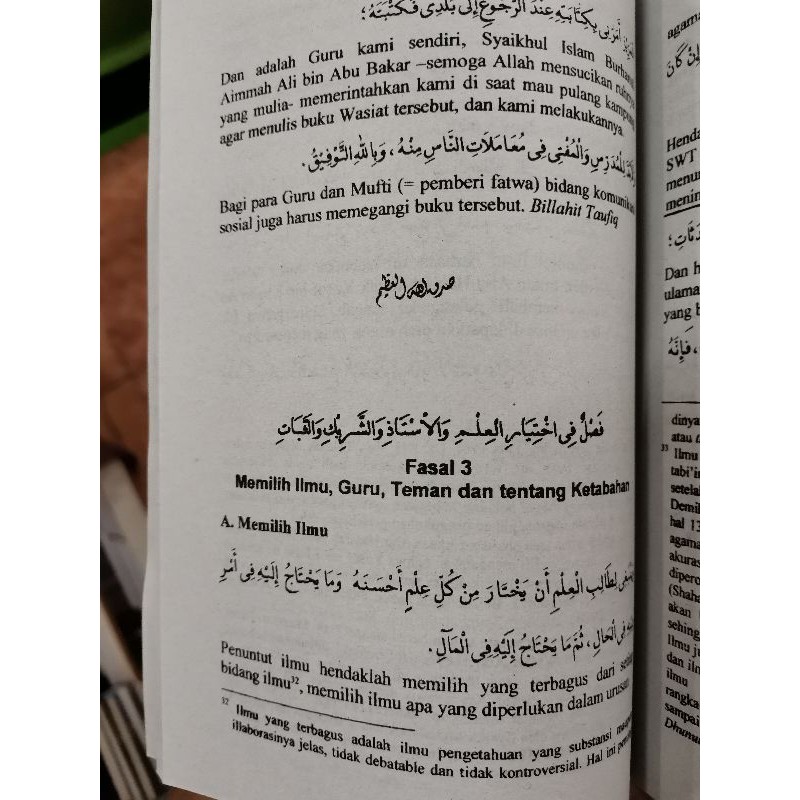 أَمَرَنِى بِكِتَابَتِهِ عِنْدَ الرُّجُوعِ إِلَى بَلَدِى فَكَتَبْتُهُ؛
Dan adalah Guru kami sendiri, Syaikhul Islam
Aimmah Ali bin Abu Bakar –semoga Allah mensucikan
yang mulia- memerintahkan kami di saat mau pulang kampung
agar menulis buku Wasiat tersebut, dan kami melakukannya.
لِلْمُدَرِّسِ وَالْمُفْتِى فِى مُعَامَلَاتِ النَّاسِ مِنْهُ، وَبِاللهِ التَّوْفِيْقُ.
Bagi para Guru dan Mufti (= pemberi fatwa) bidang
sosial juga harus memegangi buku tersebut. Billahit Taufiq
صدق الله العظيم
فَصْلٌ فِى اخْتِيَارِ الْعِلْمِ وَالْاُسْتَاذِ وَالشَّرِيْكِ وَالثَّبَاتِ
Fasal 3
Memilih Ilmu, Guru, Teman dan tentang Ketabahan
A. Memilih Ilmu
لِطَالِبِ الْعِلْمِ أَنْ يَخْتَارَ مِنْ كُلِّ عِلْمٍ أَحْسَنَهُ وَمَا يَحْتَاجُ إِلَيْهِ فِى أَمْرِ
فِى الْحَالِ، ثُمَّ مَا يَحْتَاجُ إِلَيْهِ فِى الْمَآلِ.
Penuntut ilmu hendaklah memilih yang terbagus dari
bidang ilmu³², memilih ilmu apa yang diperlukan dalam urusan
³² Ilmu yang terbagus adalah ilmu pengetahuan yang substansi
illaborasinya jelas, tidak debatable dan tidak kontroversial. Hal ini
agama
كَانَ
Henda
SWT
menu
menin
Dan h
ulama
yang b
، فَإِنَّهُ
dinya
atau
³³ Ilmu
tabi'in
setelah
Demi
hal 13
agama
akuras
dipero
(Shah
akan
sehing
Ilmu ju
dan iln
ilmu
rangka
sampai